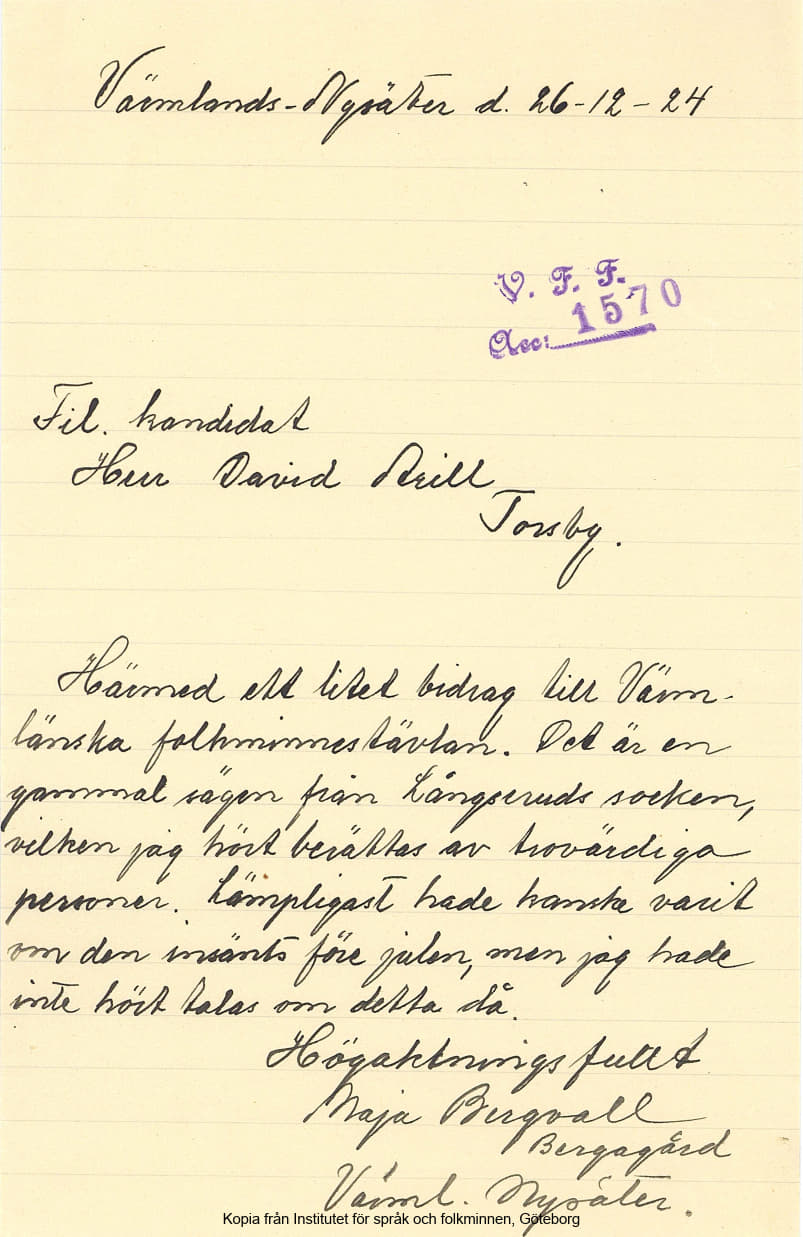 Värmlands-Nysäter d. 26-12-24
V. F. F.
Acc: 1570
Fil. kandidat
Herr David Arill
Torsby.
Härmed ett litet bidrag till Värm-
länska folkminnestävlan. Det är en
gammal sägen från Långseruds socken,
vilken jag hört berättas av trovärdiga
personer. Lämpligast hade kanske varit
om den insänts före julen, men jag hade
inte hört talas om detta då.
Högaktningsfullt
Maja Bergvall
Bergagård
Värml. Nysäter.
Kopia från Institutet för språk och folkminnen, Göteborg